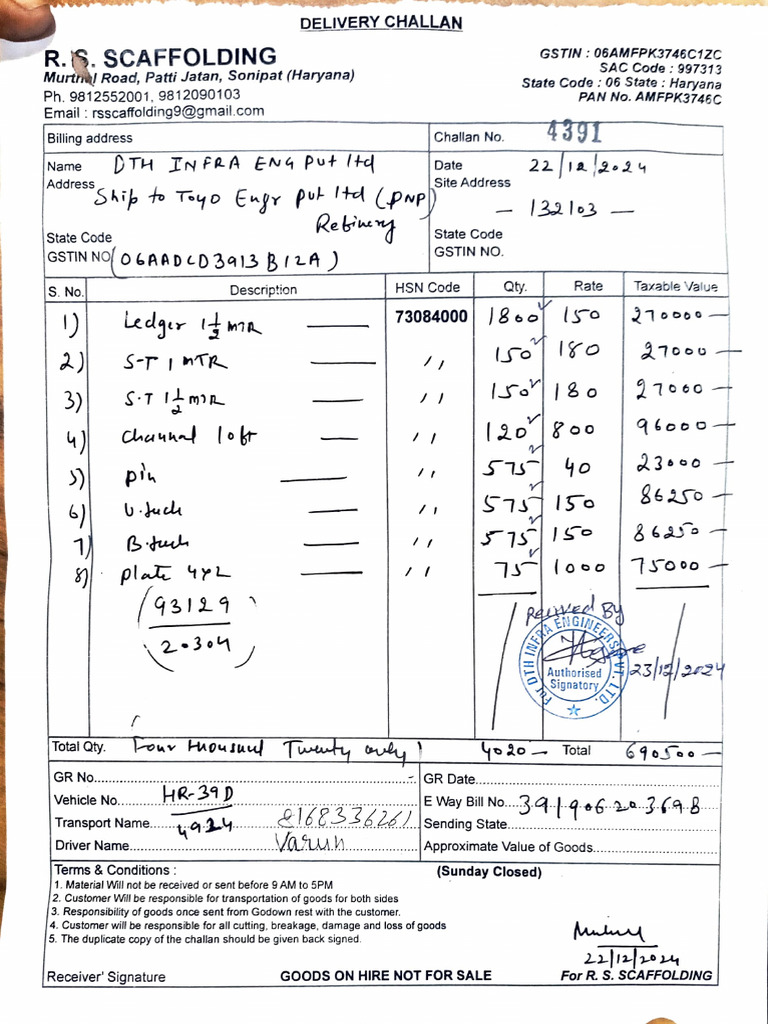 DELIVERY CHALLAN
R. S. SCAFFOLDING
Murthal Road, Patti Jatan, Sonipat (Haryana)
Ph. 9812552001, 9812090103
Email : rsscaffolding9@gmail.com
GSTIN : 06AMFPK3746C1ZC
SAC Code : 997313
State Code : 06 State : Haryana
PAN No. AMFPK3746C
Billing address
Challan No. 4391
Name DTH INFRA ENG Pvt ltd
Address Ship to Toyo Engr Pvt ltd (PNP)
Refinery
State Code
GSTIN NO (06AADCD3913B1ZA)
Date 22/12/2024
Site Address
- 132103 -
State Code
GSTIN NO.
S. No. Description HSN Code Qty. Rate Taxable Value
1) Ledger 1 1/2 MTR 73084000 1800 150 270000
2) S-T 1 MTR ,, 150 180 27000
3) S.T 1 1/2 MTR ,, 150 180 27000
4) Channal 10ft ,, 120 800 96000
5) Pin ,, 575 40 23000
6) U.Jack ,, 575 150 86250
7) B.Jack ,, 575 150 86250
8) Plate 4x2 ,, 75 1000 75000
(93129
20304)
Received By
For DTH INFRA ENGINEERS PVT. LTD.
Authorised
Signatory
23/12/2024
Total Qty. Four thousand Twenty only 4020 Total 690500
GR No.
GR Date
Vehicle No. HR-39D
E Way Bill No. 391906203698
Transport Name 4924 8168336261
Sending State
Driver Name Varun
Approximate Value of Goods
Terms & Conditions :
(Sunday Closed)
1. Material Will not be received or sent before 9 AM to 5PM
2. Customer Will be responsible for transportation of goods for both sides
3. Responsibility of goods once sent from Godown rest with the customer.
4. Customer will be responsible for all cutting, breakage, damage and loss of goods
5. The duplicate copy of the challan should be given back signed.
22/12/2024
Receiver' Signature
GOODS ON HIRE NOT FOR SALE
For R. S. SCAFFOLDING